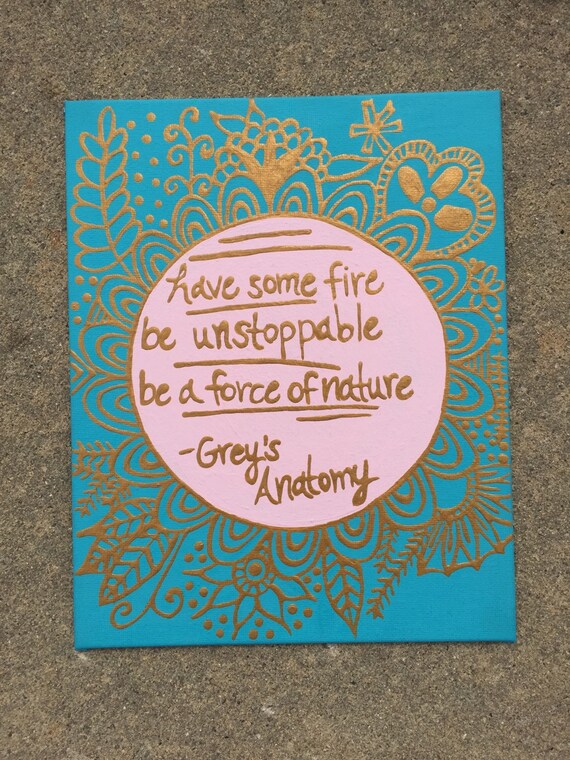 have some fire
be unstoppable
be a force of nature
-Grey's
Anatomy